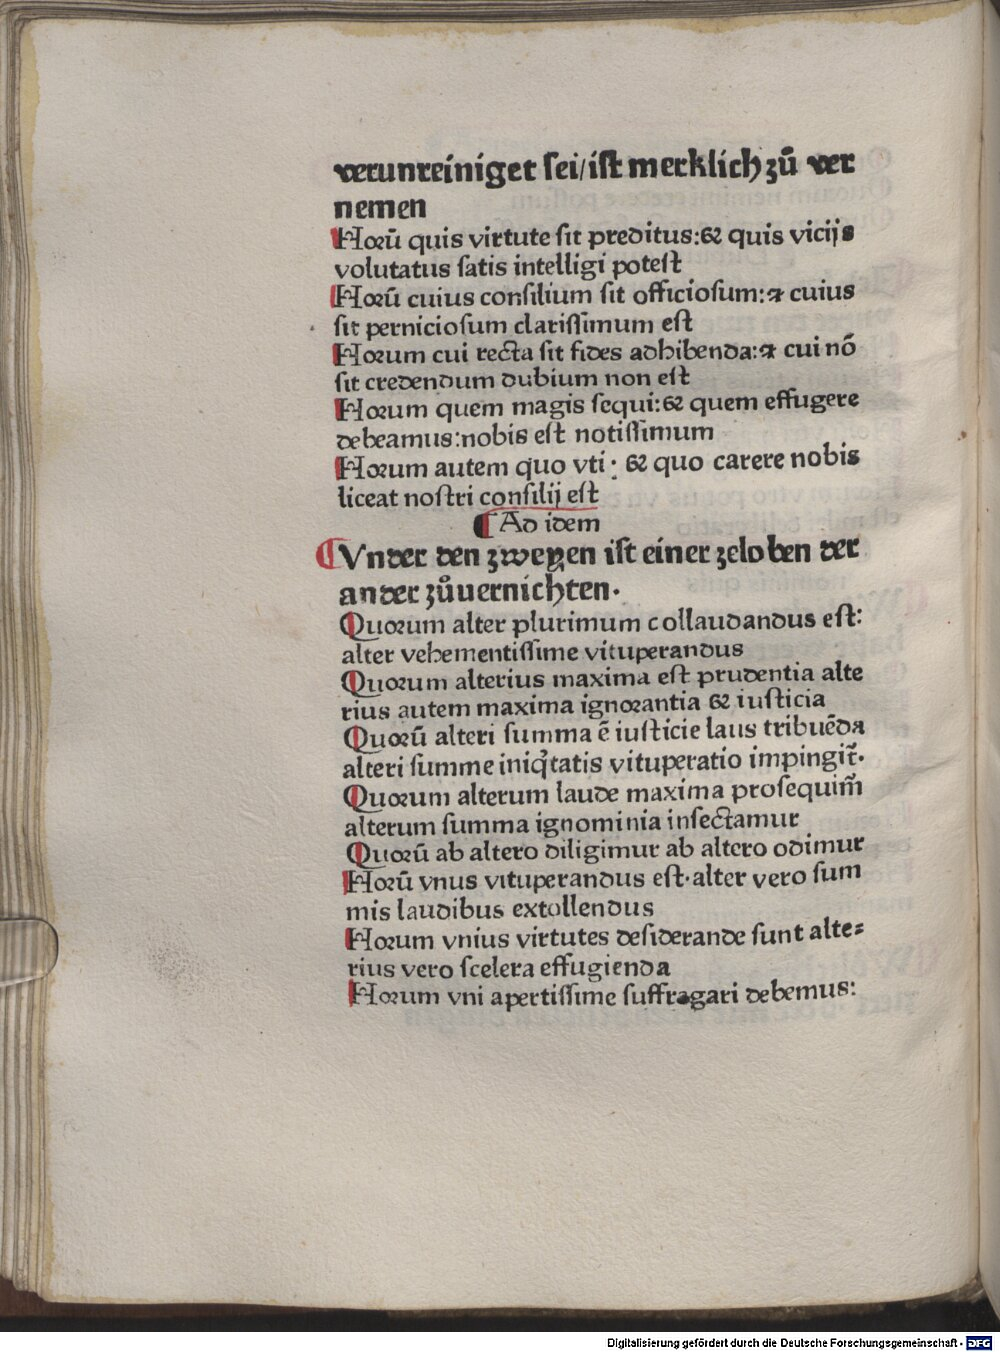 verunreiniget sei/ist mercklich zū ver
nemen
Horū quis virtute sit preditus:& quis vicijs
volutatus satis intelligi potest
Horū cuius consilium sit officiosum:⁊ cuius
sit perniciosum clarissimum est
Horum cui recta sit fides adhibenda:⁊ cui nō
sit credendum dubium non est
Horum quem magis sequi:& quem effugere
debeamus:nobis est notissimum
Horum autem quo vti : & quo carere nobis
liceat nostri consilij est
¶ Ad idem
¶ Vnder den zweyen ist einer zeloben der
ander zůuernichten.
Quorum alter plurimum collaudandus est:
alter vehementissime vituperandus
Quorum alterius maxima est prudentia alte
rius autem maxima ignorantia & iusticia
Quorū alteri summa ē iusticie laus tribuēda
alteri summe iniq̇tatis vituperatio impingit̃.
Quorum alterum laude maxima prosequim̃
alterum summa ignominia insectamur
Quorū ab altero diligimur ab altero odimur
Horū vnus vituperandus est.alter vero sum
mis laudibus extollendus
Horum vnius virtutes desiderande sunt alte⸗
rius vero scelera effugienda
Horum vni apertissime suffragari debemus:
Digitalisierung gefördert durch die Deutsche Forschungsgemeinschaft - DFG